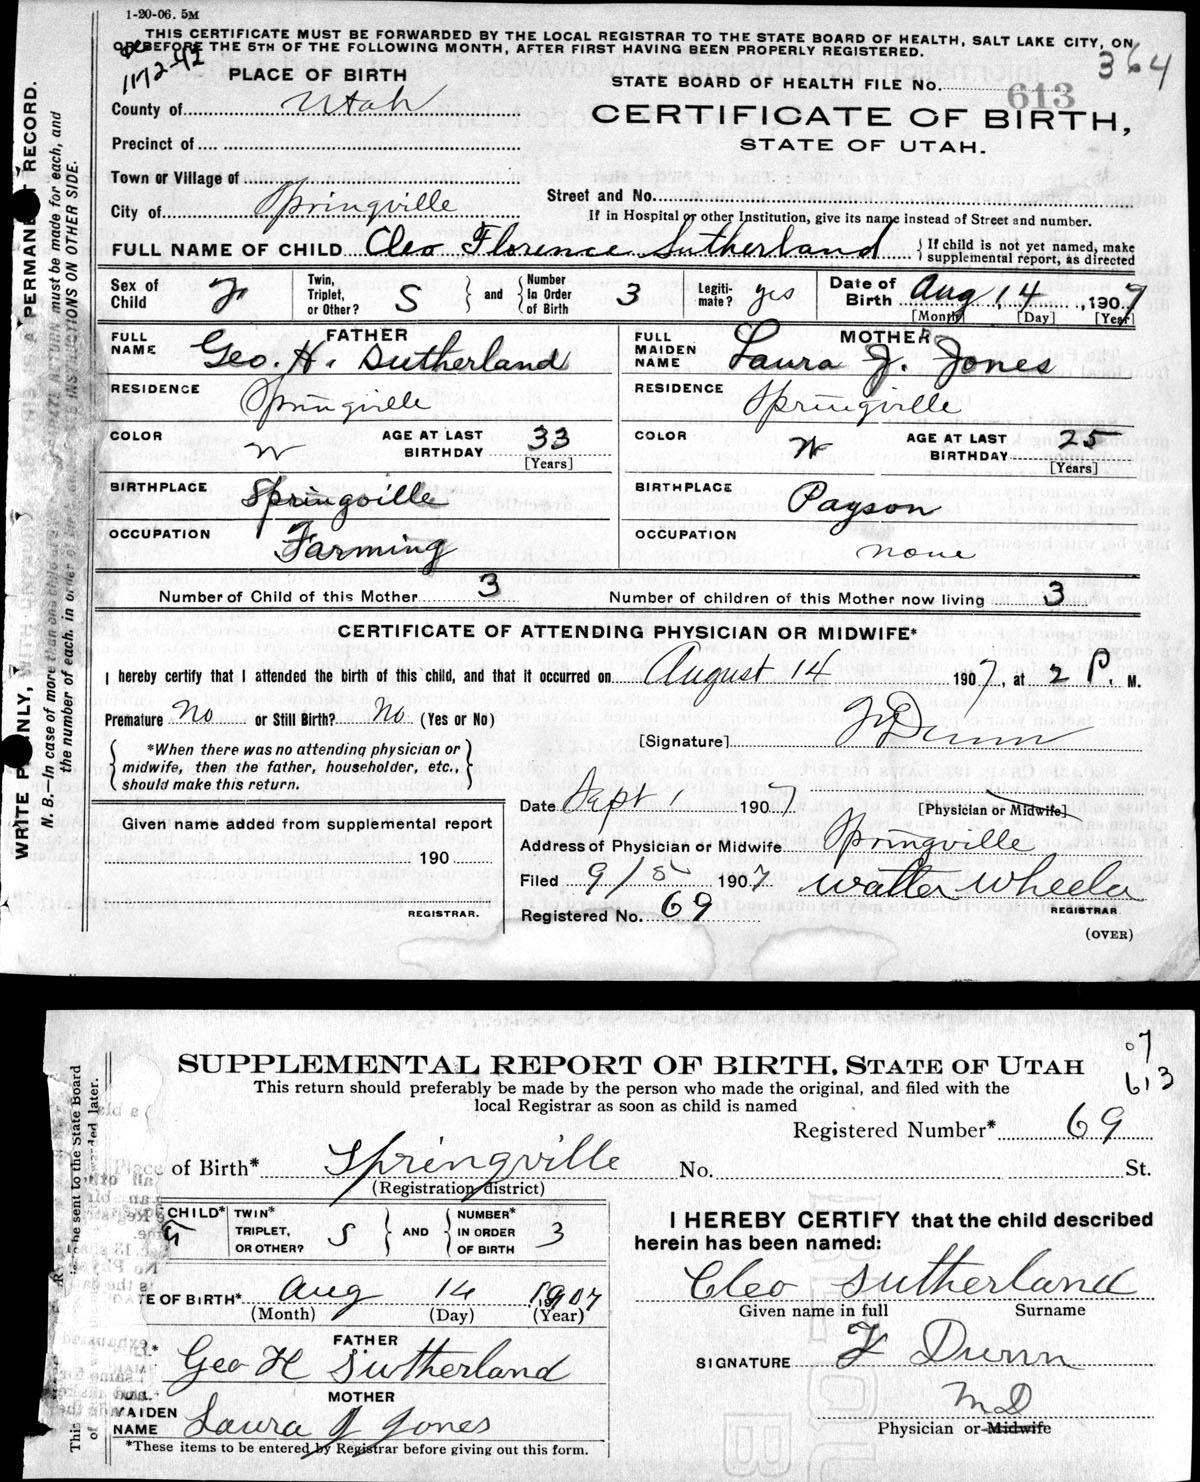 1-20-06. 5M
THIS CERTIFICATE MUST BE FORWARDED BY THE LOCAL REGISTRAR TO THE STATE BOARD OF HEALTH, SALT LAKE CITY, ON
OR BEFORE THE 5TH OF THE FOLLOWING MONTH, AFTER FIRST HAVING BEEN PROPERLY REGISTERED.
364
PLACE OF BIRTH
STATE BOARD OF HEALTH FILE No. 613
County of Utah
CERTIFICATE OF BIRTH,
STATE OF UTAH.
Precinct of
Town or Village of
Street and No.
City of Springville
If in Hospital or other Institution, give its name instead of Street and number.
FULL NAME OF CHILD Cleo Florence Sutherland { If child is not yet named, make supplemental report, as directed
Sex of Child F Twin, Triplet, or Other? S and Number In Order of Birth 3 Legitimate? yes Date of Birth Aug 14, 1907
[Month] [Day] [Year]
FATHER
MOTHER
FULL NAME Geo. H. Sutherland
FULL MAIDEN NAME Laura J. Jones
RESIDENCE Springville
RESIDENCE Springville
COLOR W AGE AT LAST BIRTHDAY 33 [Years]
COLOR W AGE AT LAST BIRTHDAY 25 [Years]
BIRTHPLACE Springville
BIRTHPLACE Payson
OCCUPATION Farming
OCCUPATION none
Number of Child of this Mother 3
Number of children of this Mother now living 3
CERTIFICATE OF ATTENDING PHYSICIAN OR MIDWIFE*
I hereby certify that I attended the birth of this child, and that it occurred on August 14 1907, at 2 P. M.
Premature No or Still Birth? No (Yes or No)
[Signature] Dunn
*When there was no attending physician or
midwife, then the father, householder, etc.,
should make this return.
Date Sept 1 1907
[Physician or Midwife]
Given name added from supplemental report
Address of Physician or Midwife Springville
190
Filed 9/5 1907 Walter Wheeler
REGISTRAR.
REGISTRAR
Registered No. 69
(OVER)
N. B.—In case of more than one
the number of each, in order of
must be made for each, and
INSTRUCTIONS ON OTHER SIDE.
SUPPLEMENTAL REPORT OF BIRTH, STATE OF UTAH
07
613
This return should preferably be made by the person who made the original, and filed with the
local Registrar as soon as child is named
Registered Number* 69
Place of Birth* Springville No. St.
(Registration district)
CHILD* TWIN* TRIPLET, OR OTHER? S AND NUMBER* IN ORDER OF BIRTH 3
I HEREBY CERTIFY that the child described
herein has been named:
DATE OF BIRTH* Aug 14 1907
(Month) (Day) (Year)
Cleo Sutherland
Given name in full Surname
FATHER
Geo H Sutherland
SIGNATURE F Dunn
MOTHER
MAIDEN NAME Laura J Jones
MD
Physician or Midwife
*These items to be entered by Registrar before giving out this form.